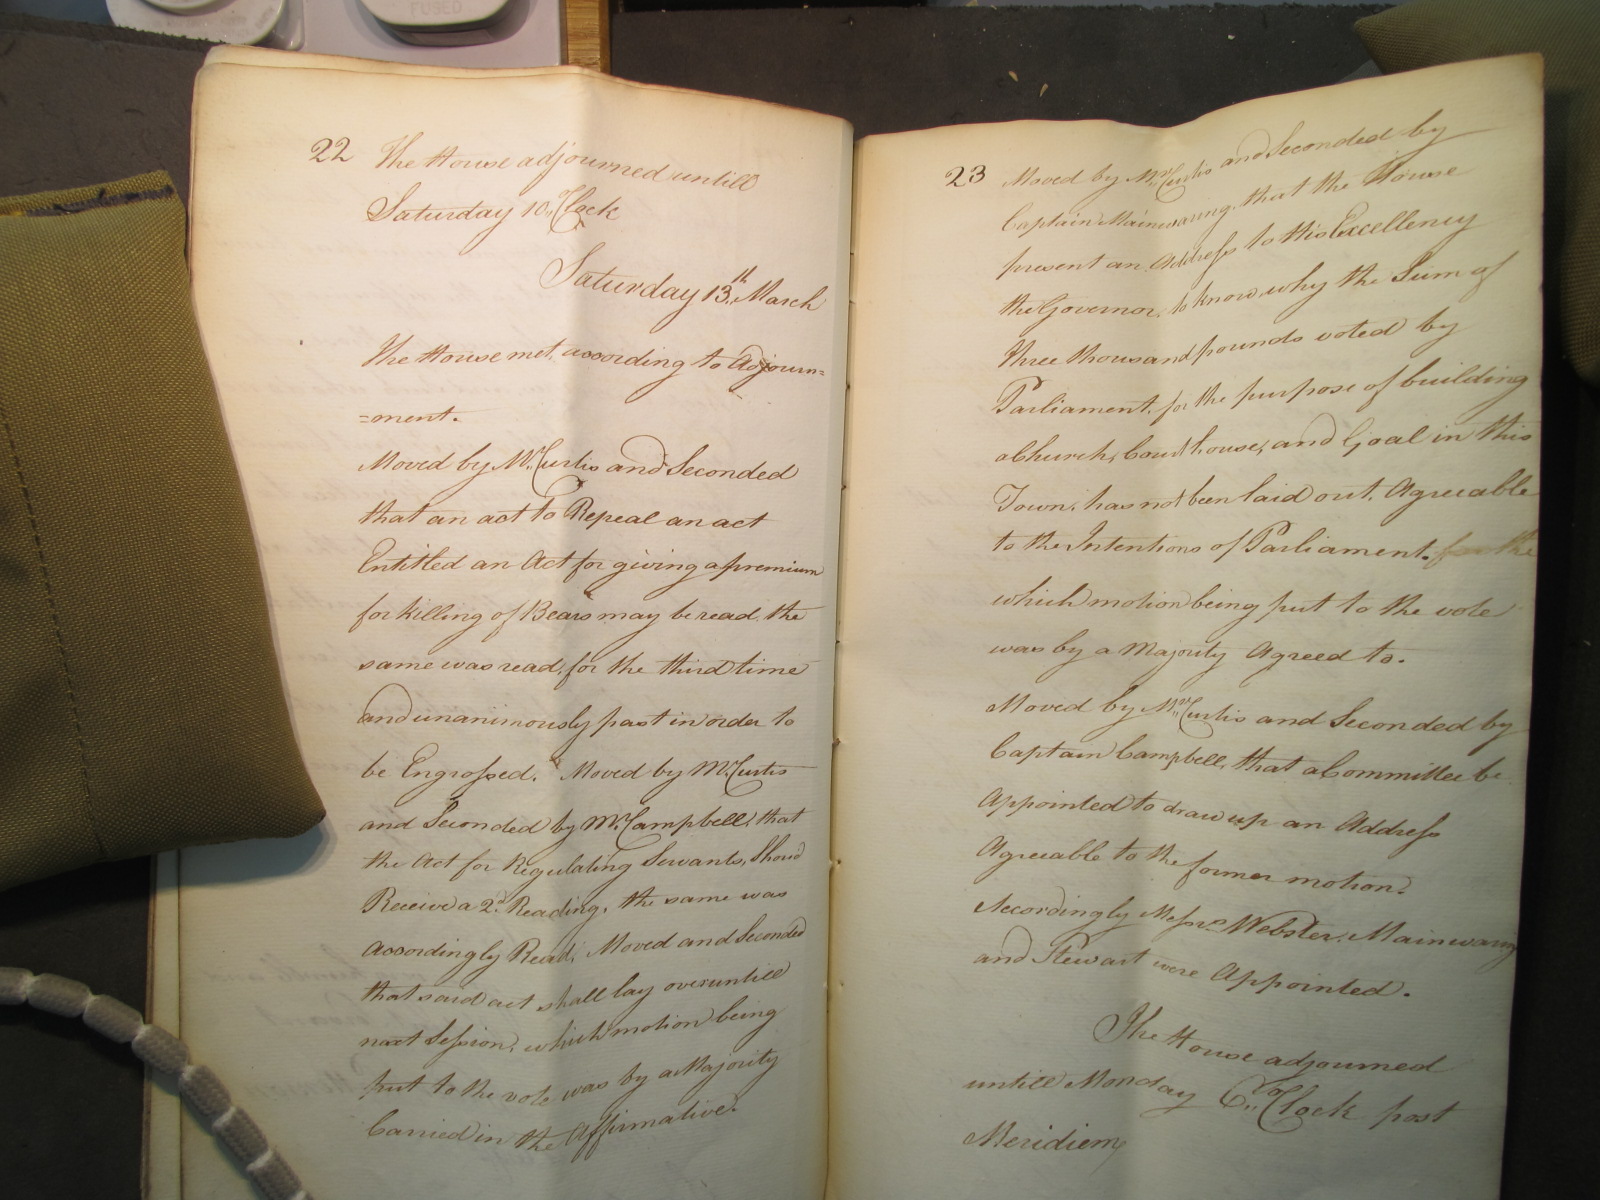 FUSED
22 The House adjourned untill
Saturday 10,, oClock
Saturday 13th,, March
The House met, according to Adjourn=
=ment.
Moved by Mr. Curtis and Seconded
that an act to Repeal an act
Entitled an Act for giving a premium
for killing of Bears may be read, the
same was read, for the third time
and unanimously past in order to
be Engrossed. Moved by Mr. Curtis
and Seconded by Mr. Campbell, that
the Act for Regulating Servants, Shoud
Receive a 2d. Reading, the same was
accordingly Read; Moved and Seconded
that said act shall lay over untill
next Session, which motion being
put to the vote was by a Majority
Carried in the Affirmative.
23 Moved by Mr,, Curtis and Seconded by
Captain Mainwaring, that the House
present an Address to His Excellency
the Governor, to know, why the Sum of
Three thousand pounds voted by
Parliament, for the purpose of building
a Church, Courthouse, and Goal in this
Town, has not been laid out, Agreeable
to the Intentions of Parliament. for the
which motion being put to the vote
was by a Majority Agreed to.
Moved by Mr,, Curtis and Seconded by
Captain Campbell, that a Committee be
Appointed to draw up an Address
Agreeable to the former motion.
Accordingly Messrs Webster, Mainwaring
and Stewart were Appointed.
The House adjourned
untill Monday 6,, oClock post
Meridiem